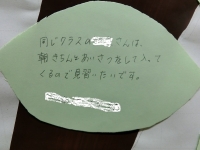 同じクラスの さんは、
朝きちんとあいさつをして入って
くるので見習いたいです。